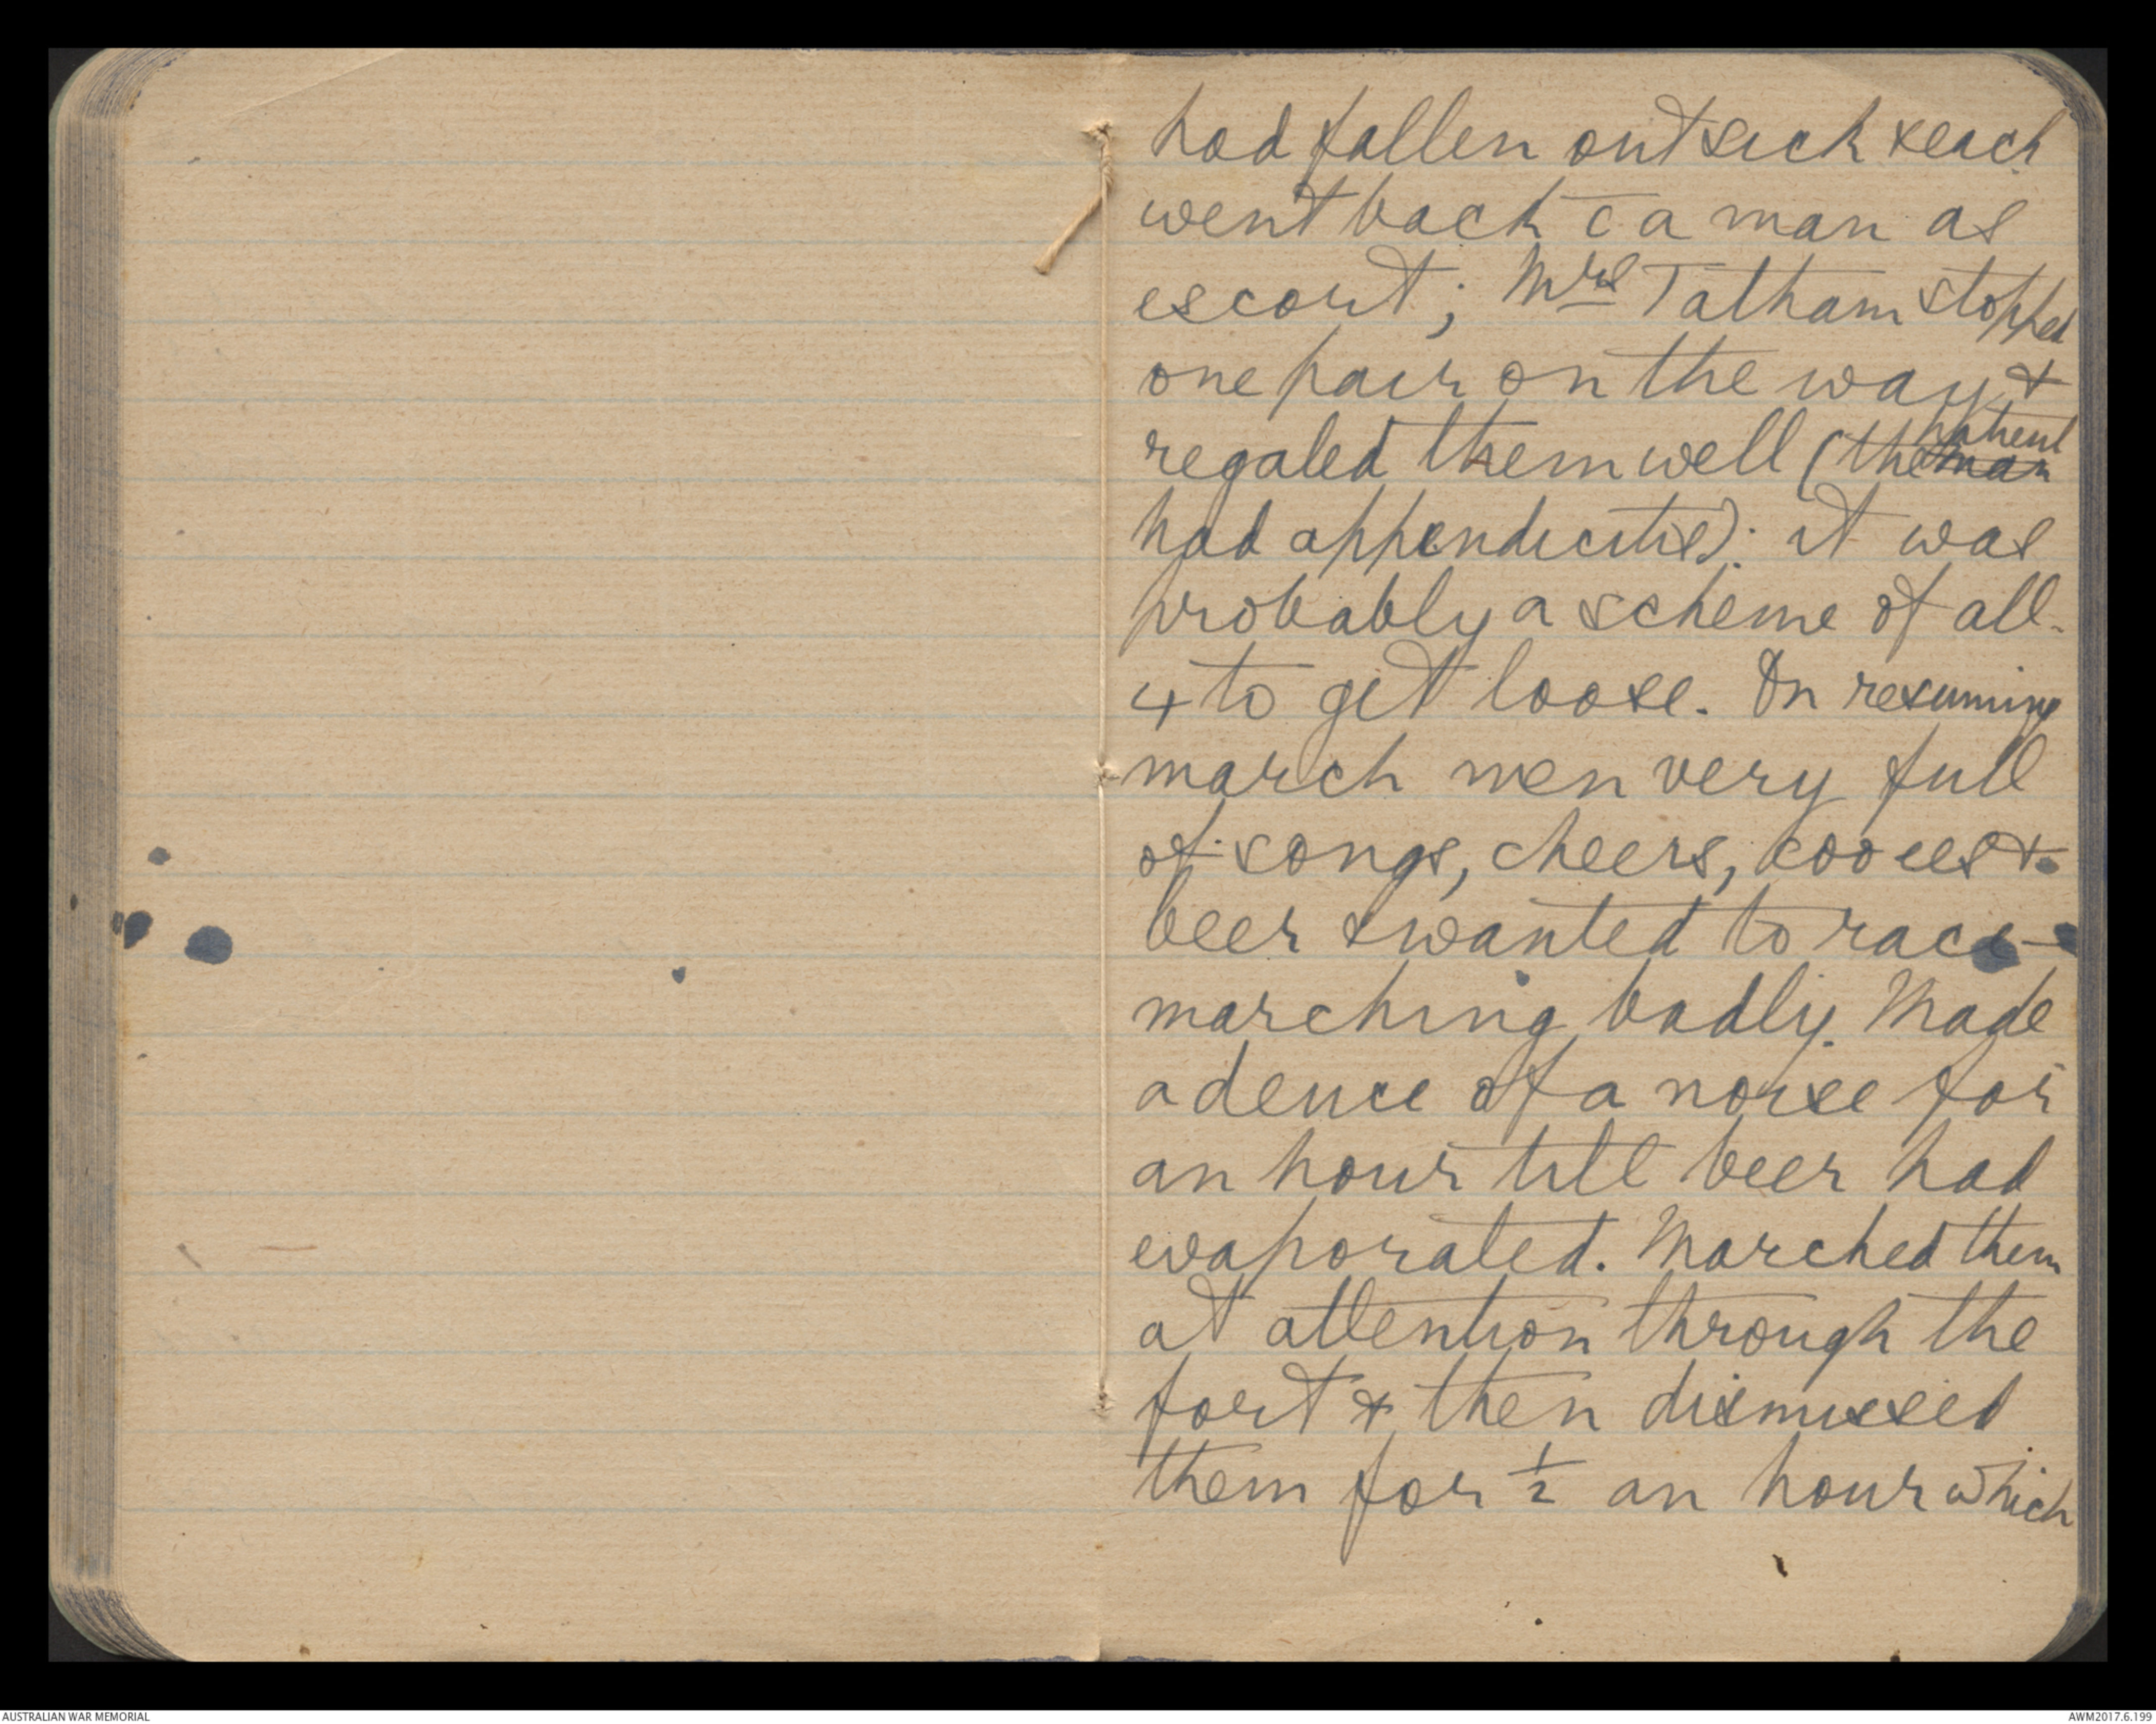 had fallen out sick & each
went back c̄ a man as
escort; Mrs Tatham stopped
one pair on the way &
regaled them well (the man patient
had appendicitis): it was
probably a scheme of all
4 to get loose. On resuming
march men very full
of songs, cheers, cooees &
beer & wanted to race -
marching badly. Made
a deuce of a noise for
an hour till beer had
evaporated. Marched them
at attention through the
fort & then dismissed
them for ½ an hour which
AUSTRALIAN WAR MEMORIAL
AWM2017.6.199